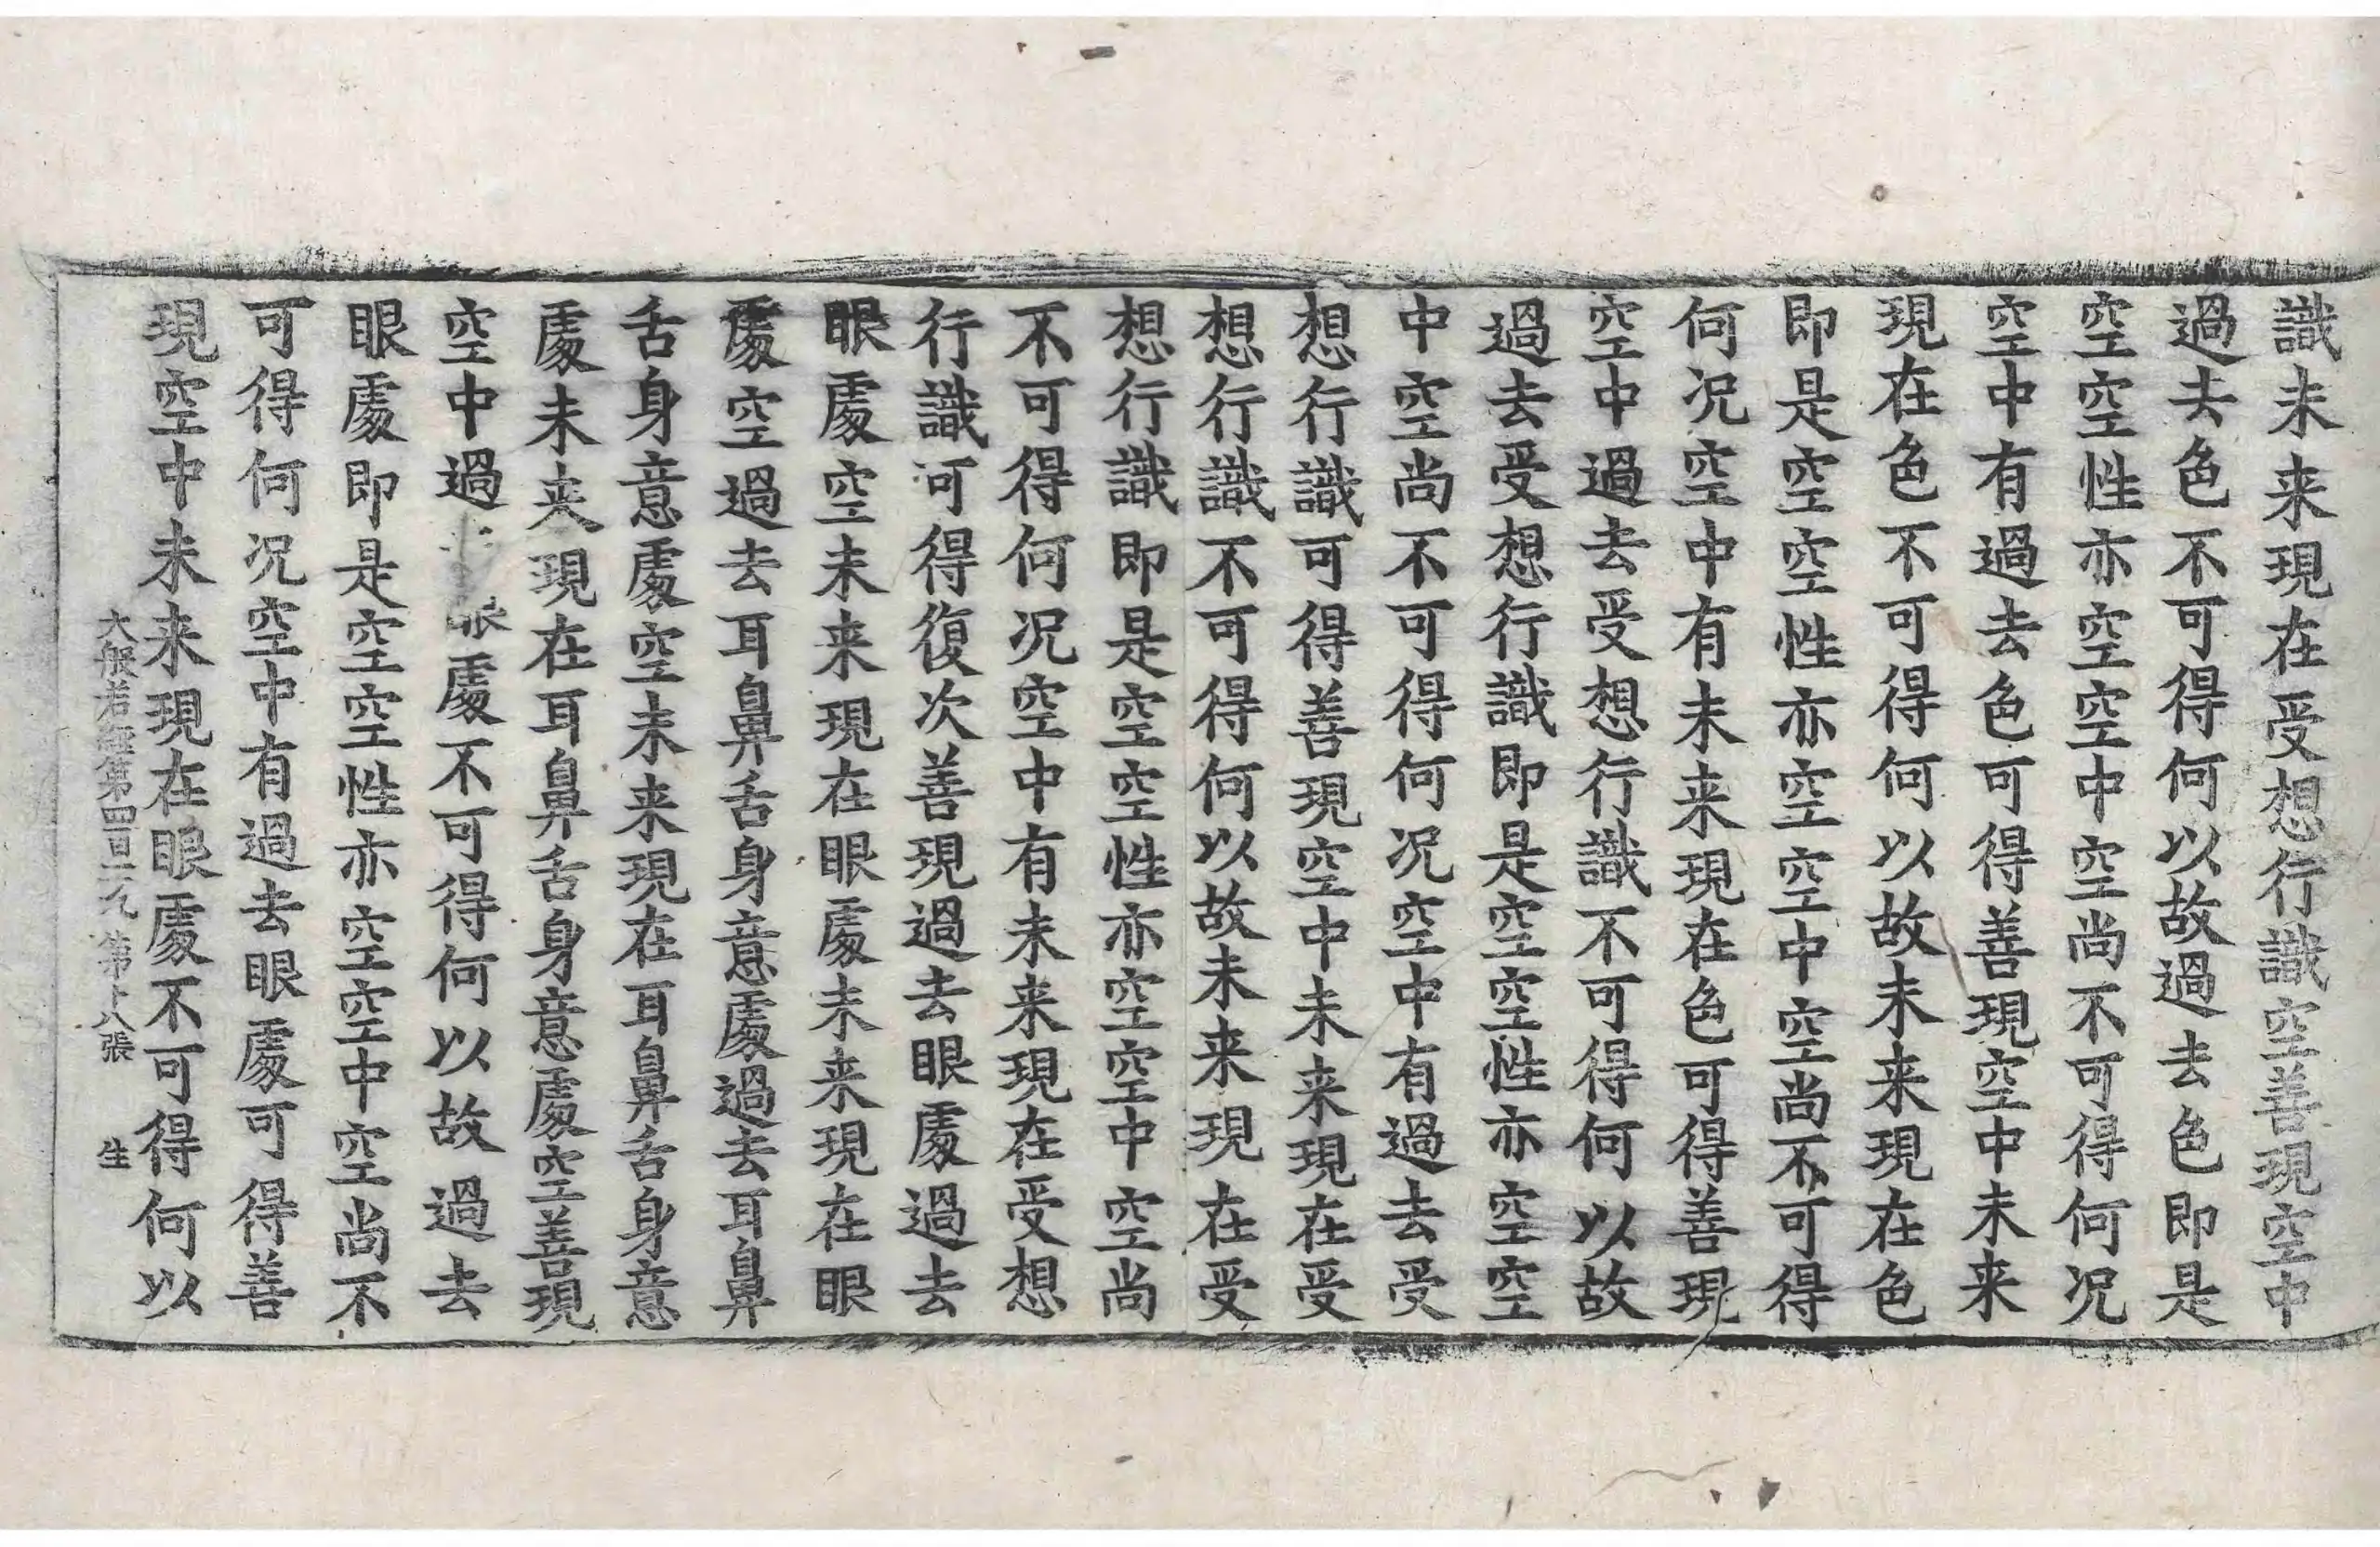 識未来現在受想行識空善現空中
過去色不可得何以故過去色即是
空空性亦空空中空尚不可得何况
空中有過去色可得善現空中未来
現在色不可得何以故未来現在色
即是空空性亦空空中空尚不可得
何况空中有未来現在色可得善現
空中過去受想行識不可得何以故
過去受想行識即是空空性亦空空
中空尚不可得何况空中有過去受
想行識可得善現空中未来現在受
想行識不可得何以故未来現在受
想行識即是空空性亦空空中空尚
不可得何况空中有未来現在受想
行識可得復次善現過去眼處過去
眼處空未来現在眼處未来現在眼
處空過去耳鼻舌身意處過去耳鼻
舌身意處空未来現在耳鼻舌身意
處未来現在耳鼻舌身意處空善現
空中過眼處不可得何以故過去
眼處即是空空性亦空空中空尚不
可得何况空中有過去眼處可得善
現空中未来現在眼處不可得何以
大般若經第四百十九 第十八張 生